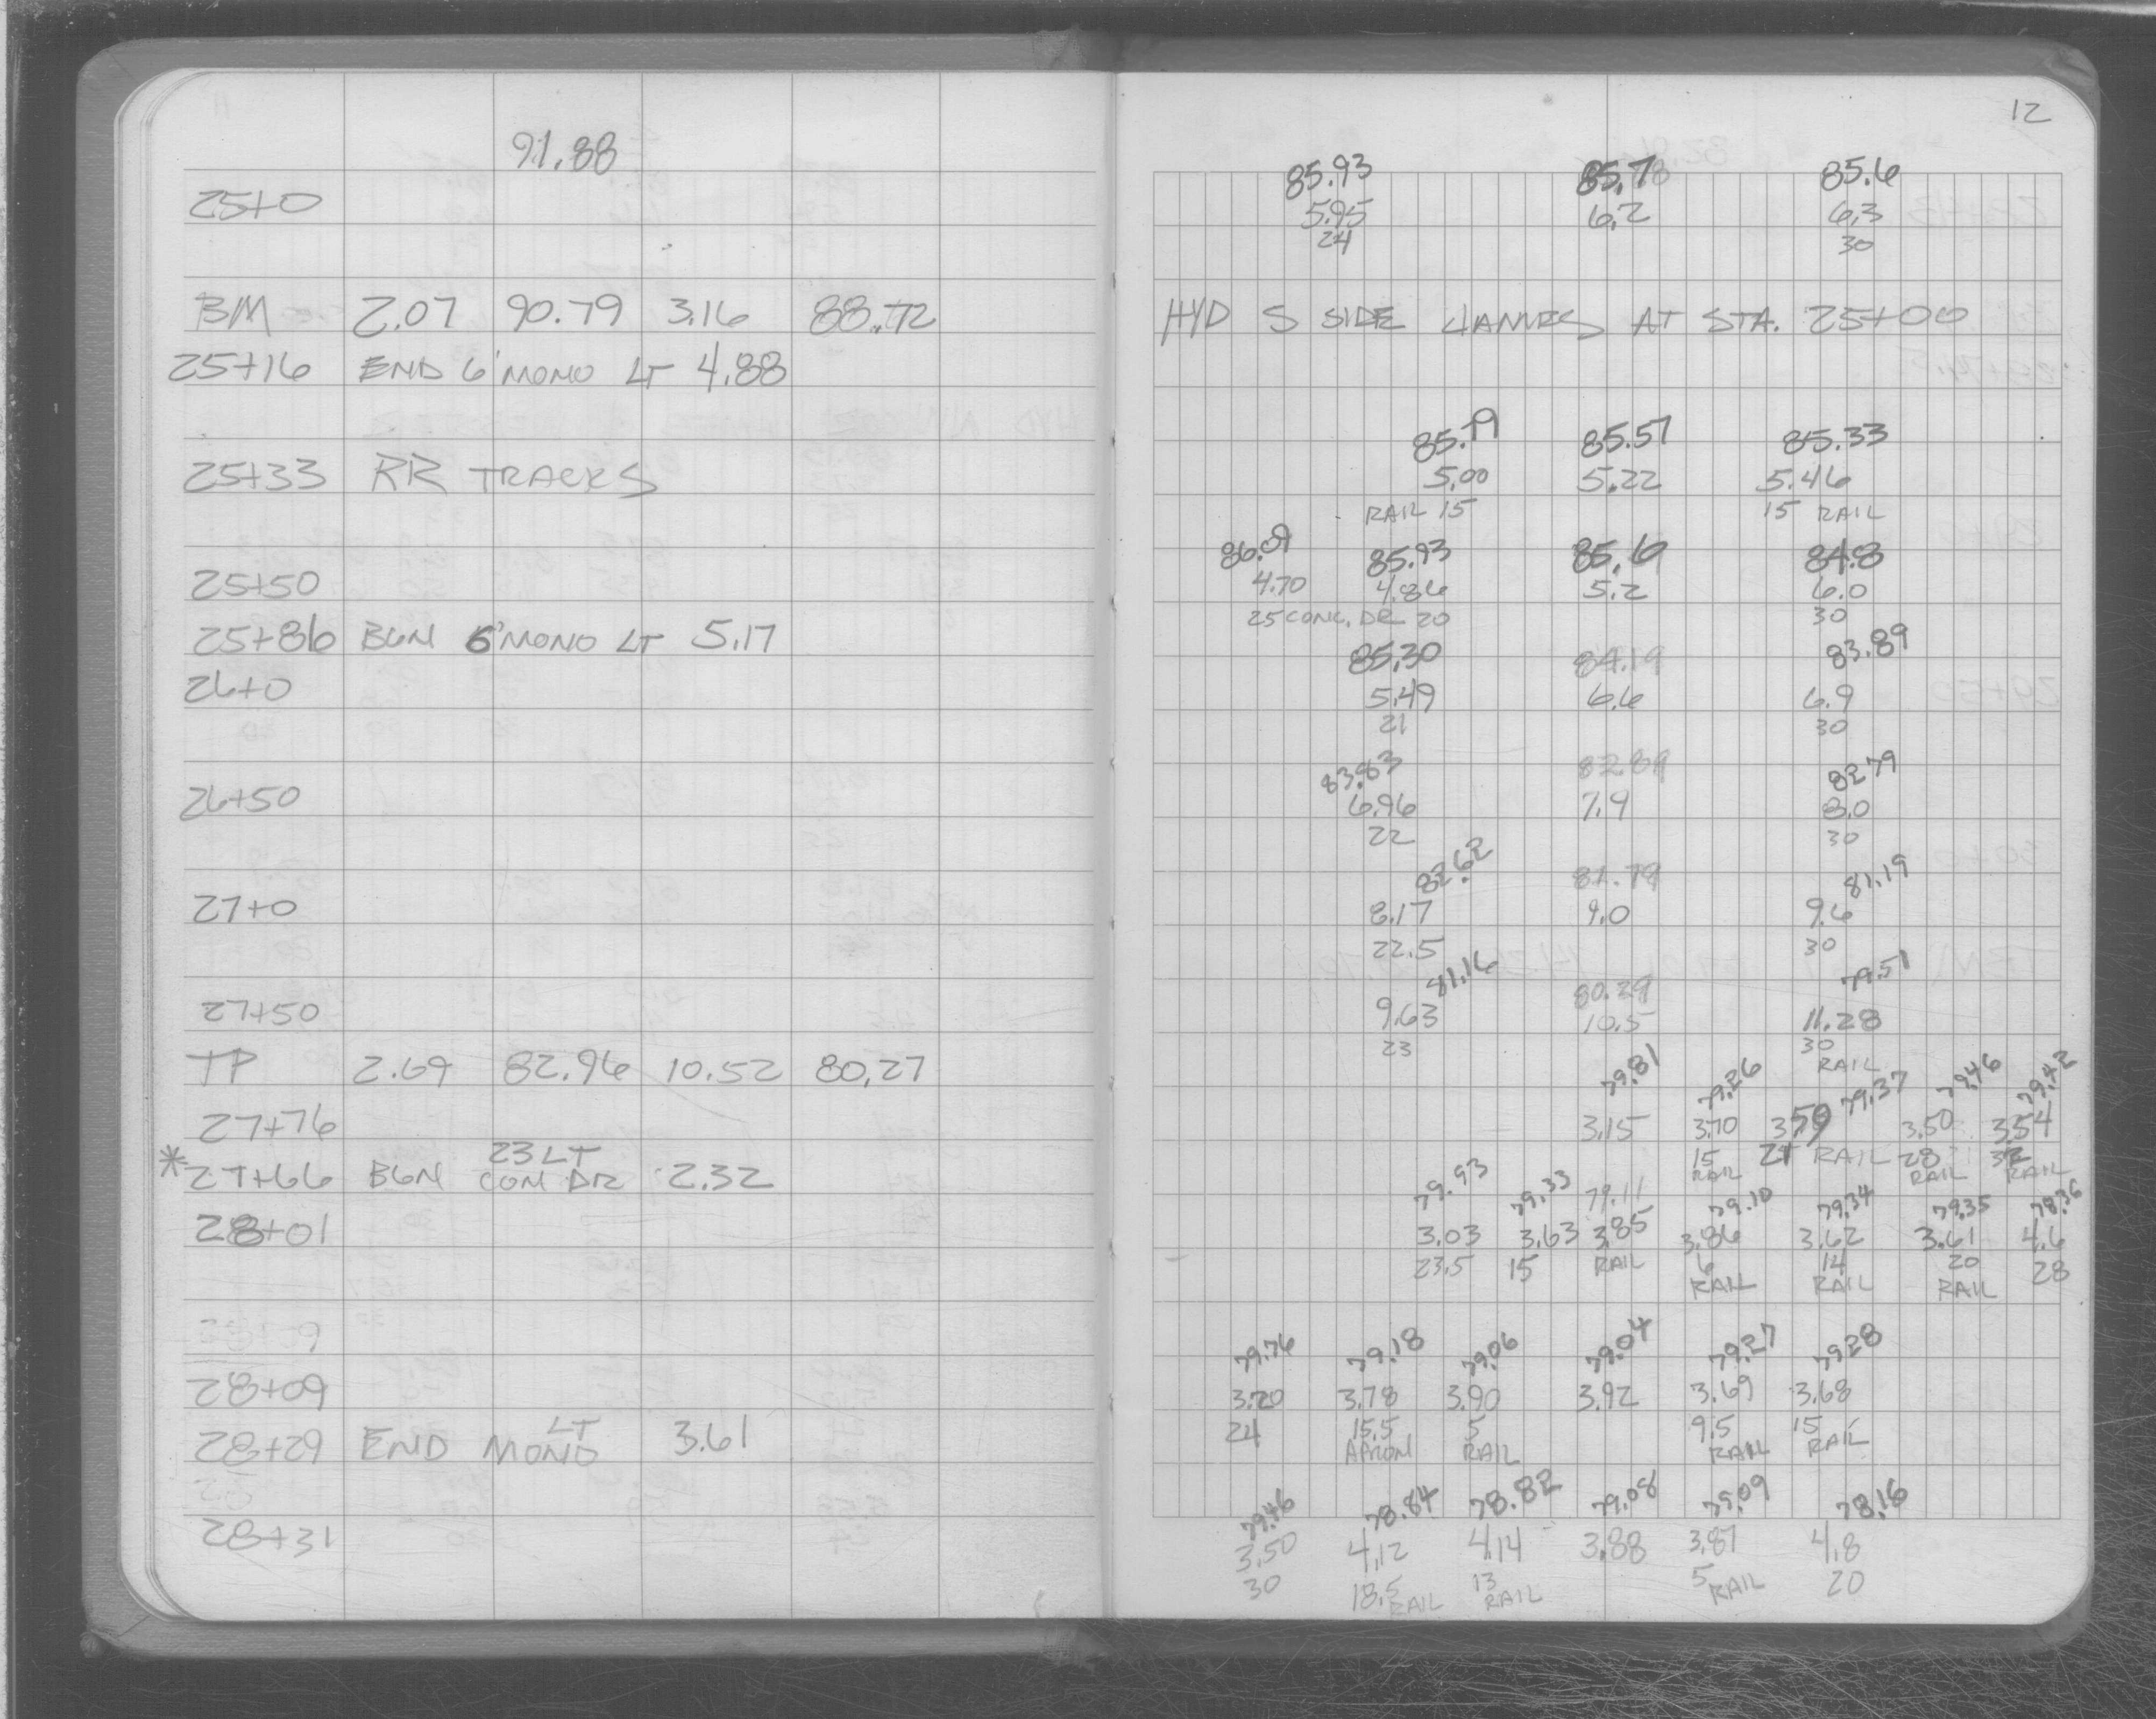 12
91.88
85.93 85.7 85.6
25+0 5.95 6.2 6.3
24 30
BM 2.07 90.79 3.16 88.72 HYD S SIDE AT STA. 25+00
25+16 END 6' MONO LT 4.88
85.79 85.57 85.33
25+33 RR TRACKS 5.00 5.22 5.46
RAIL 15 15 RAIL
86.09 85.93 85.6 84.8
25+50 4.70 4.86 5.2 6.0
25 CONC. DR 20 30
25+86 BGN 6' MONO LT 5.17
85.30 84.19 83.89
26+0 5.49 6.6 6.9
21 30
83.83 82.89 82.79
26+50 6.96 7.9 8.0
22 30
82.62 81.79 81.19
27+0 8.17 9.0 9.6
22.5 30
81.16 80.29 79.51
27+50 9.63 10.5 11.28
23 30
RAIL
TP 2.69 82.96 10.52 80.27
79.81 79.26 79.37 79.46 79.42
27+76 3.15 3.70 3.59 3.50 3.54
15 RAIL 21 RAIL 28 RAIL 32 RAIL
* 27+66 BGN 23 LT CON DR 2.32
79.93 79.33 79.11 79.10 79.34 79.35 78.36
28+01 3.03 3.63 3.85 3.86 3.62 3.61 4.6
23.5 15 RAIL 6 RAIL 14 RAIL 20 RAIL 28
79.76 79.18 79.06 79.04 79.27 79.28
28+09 3.20 3.78 3.90 3.92 3.69 3.68
24 15.5 APRON 5 RAIL 9.5 RAIL 15 RAIL
28+29 END LT MONO 3.61
79.46 78.84 78.82 79.08 79.09 78.16
28+31 3.50 4.12 4.14 3.88 3.87 4.8
30 18.5 RAIL 13 RAIL 5 RAIL 20